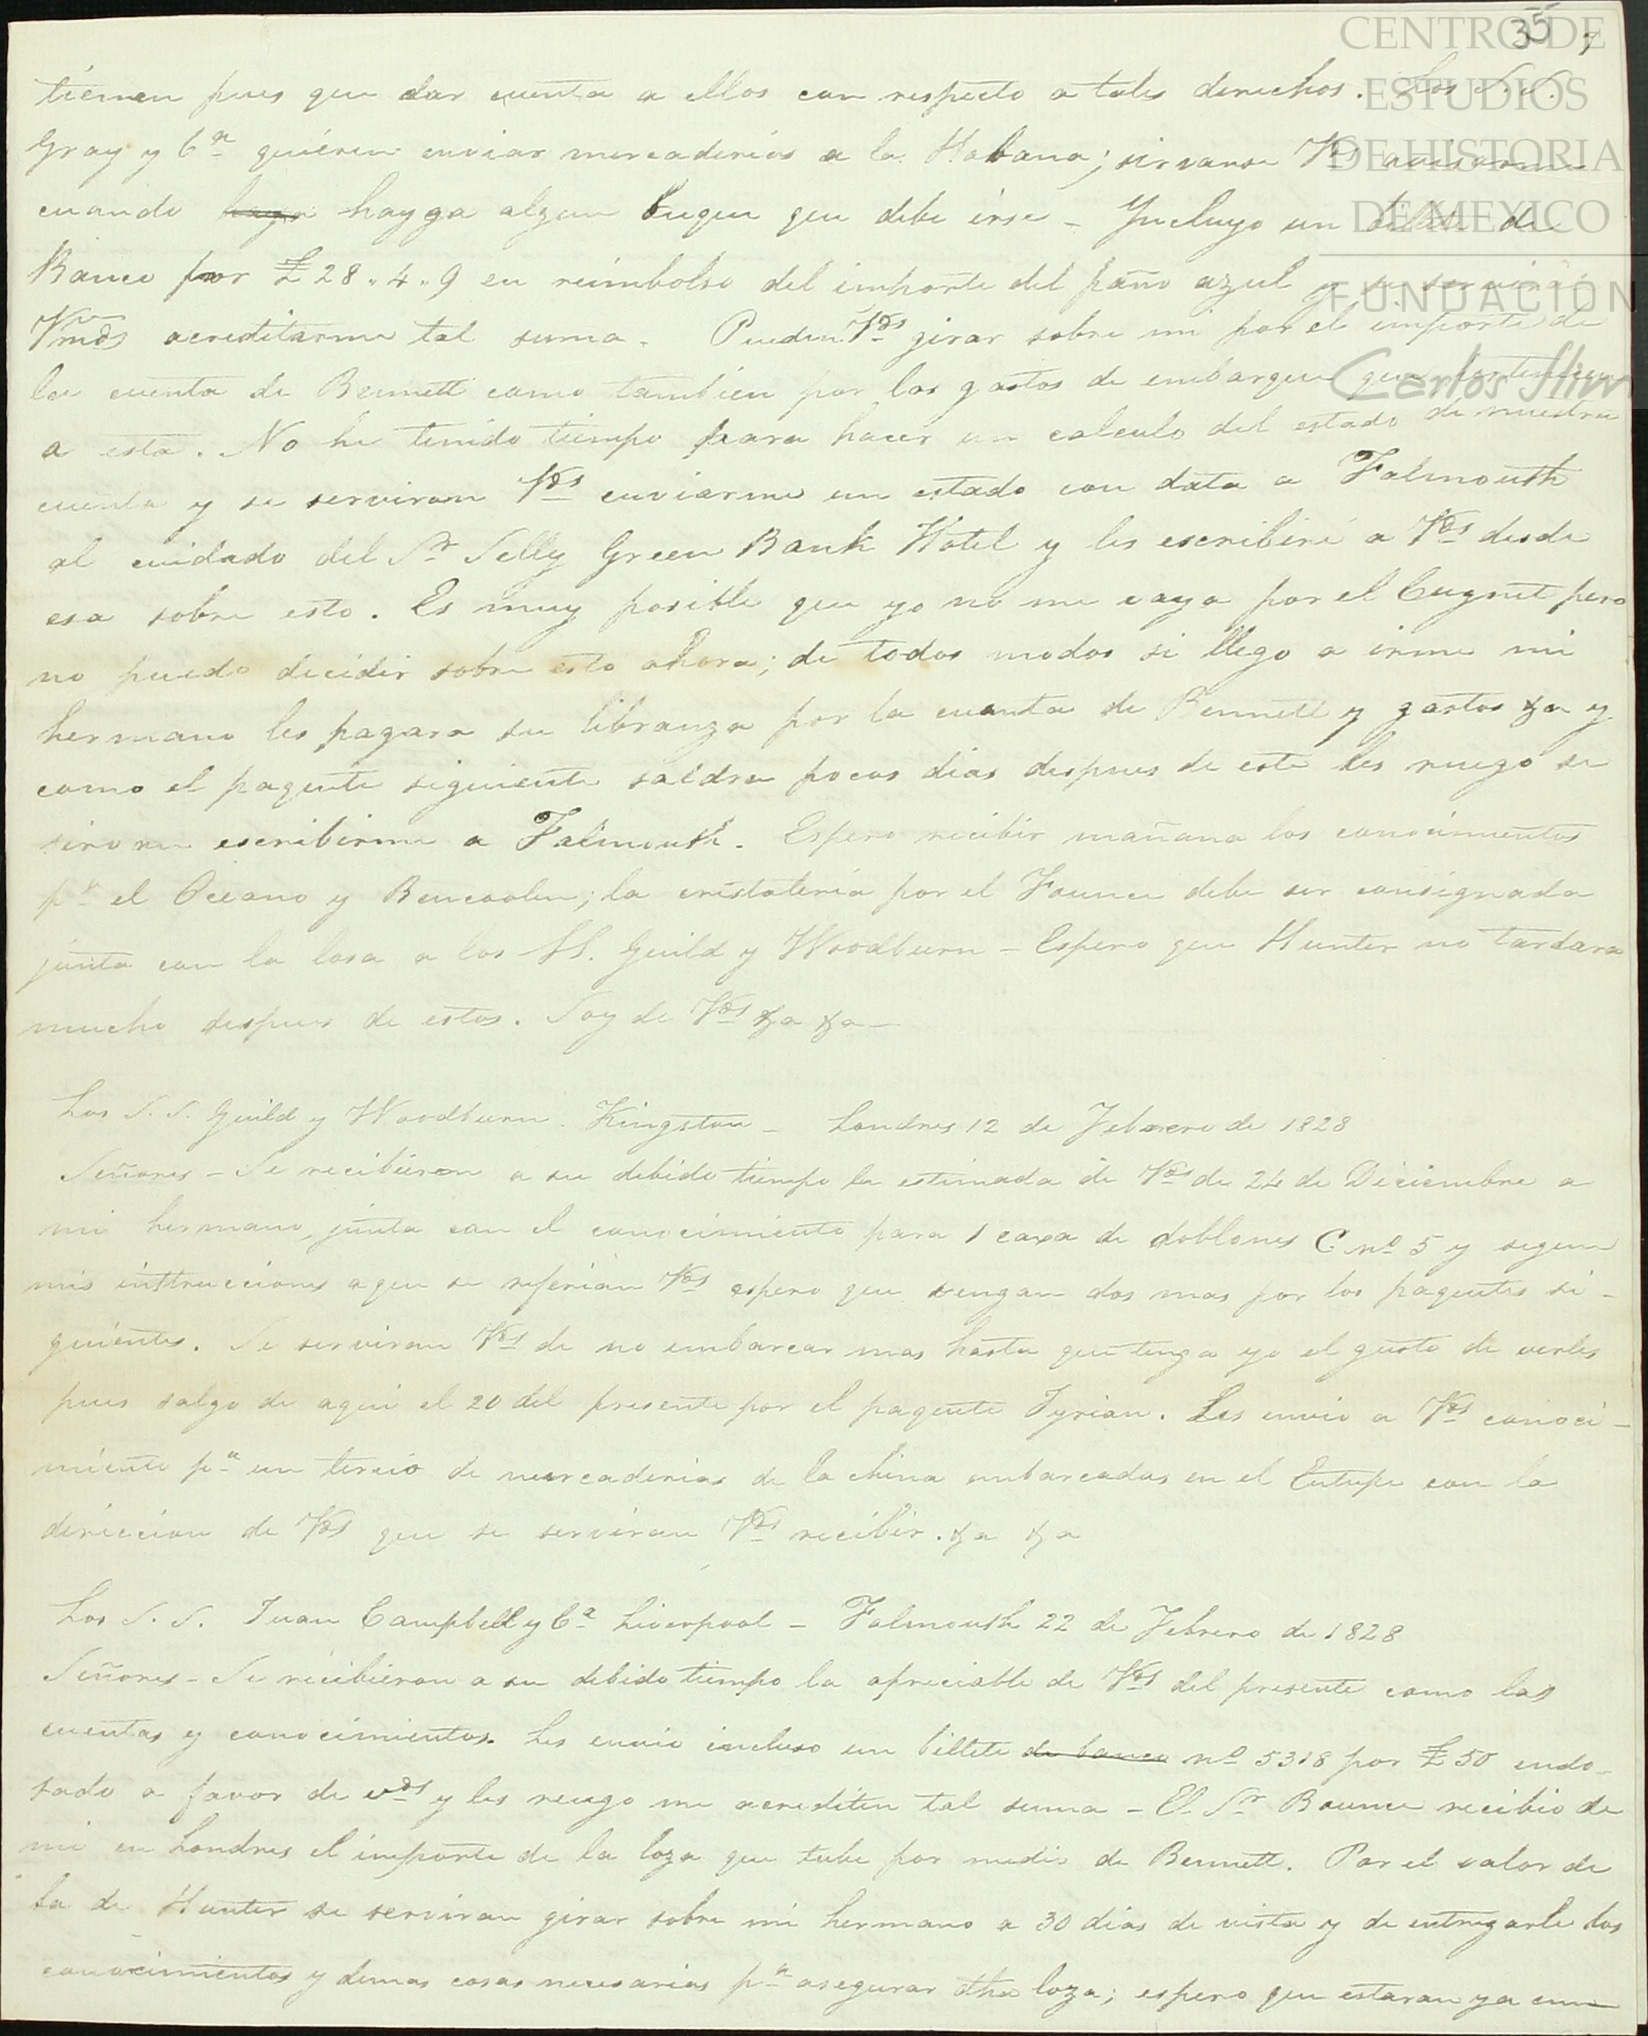 35
CENTRO DE
ESTUDIOS
DE HISTORIA
DE MEXICO
FUNDACIÓN
Carlos Slim
tienen pues que dar cuenta a ellos con respecto a tales derechos. Los S.S.
Gray y Cª quieren enviar mercaderias a la Habana; sirvanse Vds avisarme
cuando haya hayga algun buque que debe irse - Yncluyo un billete de
Banco por £28.4.9 en reimbolso del importe del paño azul y se serviran
Vmds acreditarme tal suma. Pueden Vds girar sobre mi por el importe de
la cuenta de Bennett como tambien por los gastos de embarque que pertenecen
a esta. No he tenido tiempo para hacer un calculo del estado de nuestra
cuenta y se serviran Vds enviarme un estado con data a Falmouth
al cuidado del Sr Selly Green Bank Hotel y les escribiré a Vds desde
esa sobre esto. Es muy posible que yo no me vaya por el Cugnet pero
no puedo decidir sobre esto ahora; de todos modos si llego a irme mi
hermano les pagara su libranza por la cuenta de Bennett y gastos &a y
como el paquete siguiente saldra pocos dias despues de este les ruego se
sirvan escribirme a Falmouth. Espero recibir mañana los conocimientos
pr el Oceano y Bencoolen; la cristaleria por el Faunce debe ser consignada
junta con la losa a los SS. Guild y Woodburn - Espero que Hunter no tardara
mucho despues de estos. Soy de Vds &a &a -
Los S.S. Guild y Woodburn. Kingston - Londres 12 de Febrero de 1828
Señores - Se recibieron a su debido tiempo la estimada de Vds de 24 de Diciembre a
mi hermano, junta con el conocimiento para 1 caxa de doblones C nº 5 y segun
mis instrucciones a que se referian Vds espero que vengan dos mas por los paquetes si-
guientes. Se serviran Vds de no embarcar mas hasta que tenga yo el gusto de verles
pues salgo de aqui el 20 del presente por el paquete Tyrian. Les envio a Vds conoci-
miento pª un tercio de mercaderias de la china embarcadas en el Eutepe con la
direccion de Vds que se serviran Vds recibir. &a &a
Los S.S. Juan Campbell y Cª Liverpool - Falmouth 22 de Febrero de 1828
Señores - Se recibieron a su debido tiempo la apreciable de Vds del presente como las
cuentas y conocimientos. Les envio incluso un billete de banco nº 5318 por £50 endo-
sado a favor de vds y les ruego me acrediten tal suma - El Sr Bourne recibio de
mi en Londres el importe de la loza que tube por medio de Bennett. Por el valor de
la de Hunter se serviran girar sobre mi hermano a 30 dias de vista y de entregarle los
conocimientos y demas cosas necesarias pª asegurar dha loza; espero que estaran ya em